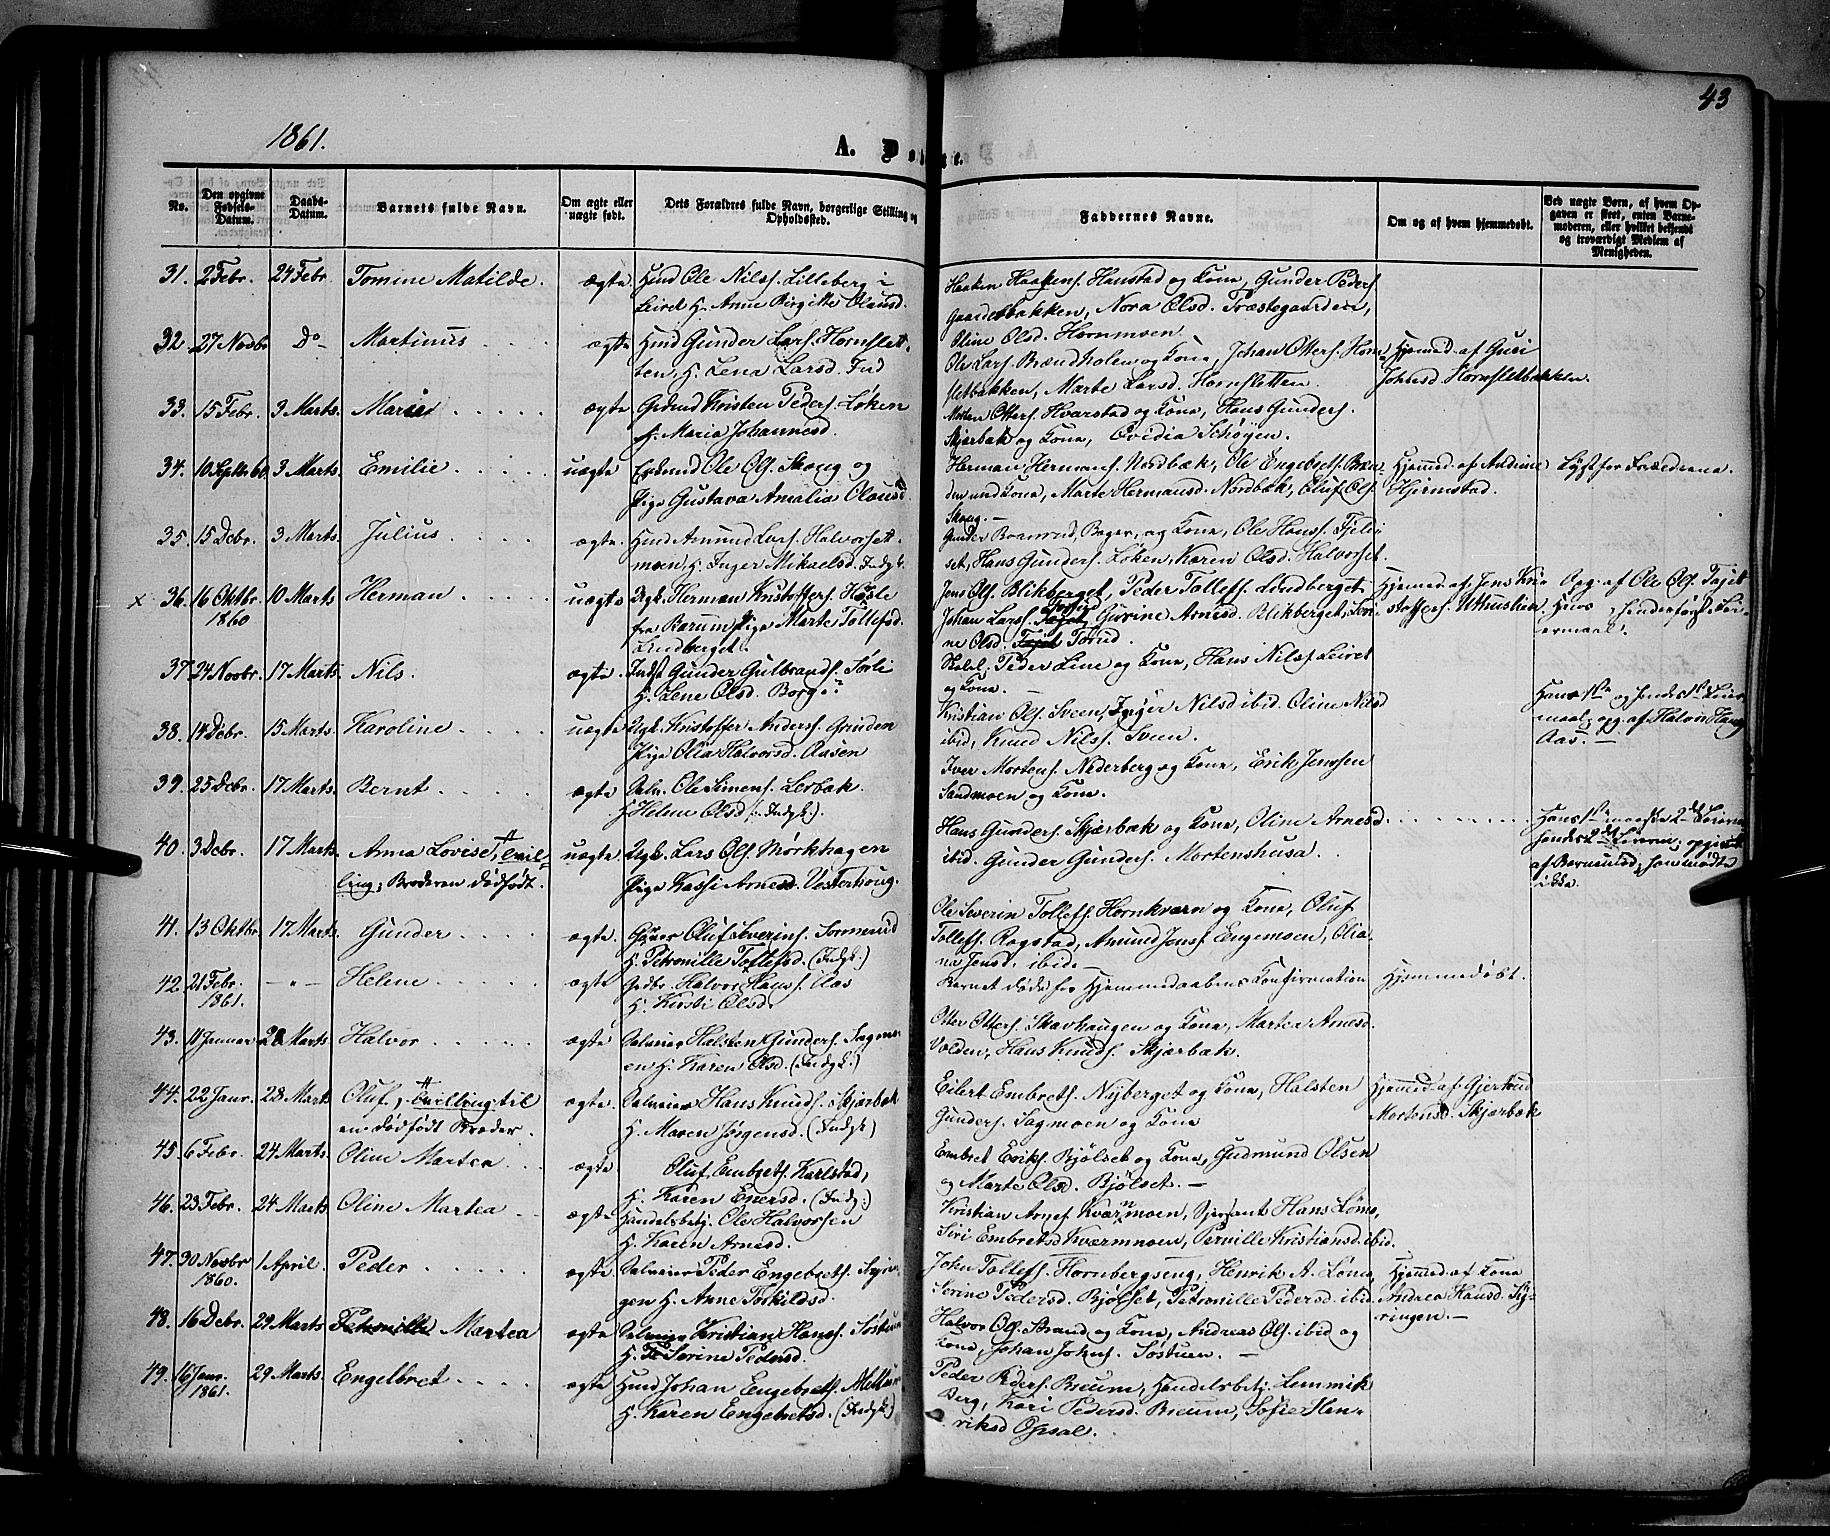 43
1861.
A. Døbte.
No.
Den opgivne Fødsels-Datum.
Daabs-Datum.
Barnets fulde Navn.
Om ægte eller uægte født.
Dets Forældres fulde Navn, borgerlige Stilling og Opholdssted.
Faddernes Navne.
Om og af hvem hjemmedøbt.
Ved uægte Børn, af hvem Opgaven er skeet, enten Barnemoderen, eller hvilket bekjendt og troværdigt Medlem af Menigheden.
31. 2 Febr. 24 Febr. Tomine Matilde. ægte Hmd Ole Nilss. Lilleberg i
Leiret H. Anne Birgitte Olausd.
Haaken Haakens. Haustad og Kone, Gunder Peders.
Gaarderbakken, Nora Olsd. Træstegaarden,
Oline Olsd. Hornmoen.
32. 27 Novbr Do Martinus ægte Hmd Gunder Lars. Hornslet-
ten, H. Lena Larsd. Ind
Ole Lars. Brændholen og Kone, Johan Otters. Horn
sletbakken, Marte Larsd. Hornsletten.
Hjemmed. af Guri
Johnsd Hornsletbakken.
33. 15 Febr. 3 Marts. Marie ægte Grdmd Kristen Peders. Løken
H. Maria Johannesd.
Morten Otters. Hvarstad og Kone, Hans Gunders.
Skjærbak og Kone, Ovidia Schøyen.
34. 10 Septbr 60 3 Marts. Emilie uægte Ole Ols. Skoug og
Pige Gustava Amalia Olausd.
Herman Hermans. Nordbæk, Ole Engebrets. Bæn-
den und Kone, Marte Hermansd. Nordbæk, Oluf Ols.
Skoug.
Hjemmed. af Andine
Hjermstad.
Lyst for Forældrene.
35. 15 Debr. 3 Marts. Julius ægte Hmd Amund Lars. Halvorsett-
moen, H. Inger Mikaelsd. Indst.
Gunder Boenrud, Bager, og Kone, Ole Hans. Fjeld-
set, Hans Gunders. Løken, Karen Olsd. Halvorset.
x 36. 16 Oktbr. 1860 10 Marts Herman uægte Ugk. Herman Kristoffers. Høsle
fra Barum, Pige Marte Tollefsd.
Lindberget.
Jens Ols. Blikberget, Peder Tollefs. Lindberget,
Johan Lars. Gurine Arnesd. Blikberget, Seri-
ne Olsd. Torud.
Hjemmed. af Jens Kri
stoffers. Uthuslien
Opg. af Ole Ols. Tajet
Hans, Hendes første Lei-
ermaal.
37. 24 Novbr. 17 Marts. Nils. ægte. Indst Gunder Gulbrands. Sørli
H. Lene Olsd. Borge
Skolel. Peder Line og Kone, Hans Nils. Leiret
og Kone.
38. 14 Debr. 15 Marts. Karoline uægte Ugk. Kristoffer Anders. Grinden
Pige Olia Halvorsd. Aasen
Kristian Ols. Sveen, Inger Nilsd ibid. Oline Nilsd
ibid, Knud Nilss. Sveen.
Hans 1ste og hendes 1ste Leier-
maal, opg. af Halvor Haug
Aas.
39. 25 Debr. 17 Marts. Bernt ægte Salv. Ole Simens. Lerbak.
H Helene Olsd (Indst.)
Iver Mortens. Nederberg og Kone, Erik Jenssen
Sandmoen og Kone.
40. 3 Debr. 17 Marts Anna Lovise, tvil-
ling, Broderen dødfødt. uægte Ugk. Lars Ols. Mørkhagen
Pige Kassi Arnesd. Vesterhoug.
Hans Gunders. Skjærbæk og Kone, Oline Arnesd.
ibid. Gunder Gunders. Mortenshusa.
Hans maaske 2det Leierm.
hendes 2det Leierm., opgivet
af Barnemd., som mødte
ikke.
41. 13 Oktbr. 17 Marts Gunder ægte Oluf Severins. Sormerud
H. Petronille Tollefsd. (Indst.)
Ole Severin Tollefs. Hornkværn og Kone, Oluf
Tollefs. Rogstad, Amund Jens. Engemoen, Olia-
na Jensd. ibid.
42. 21 Febr. 1861. - " - Helene ægte Grdbr. Halvor Hans. Aas
H. Kirsti Olsd.
Barnet døde før Hjemmedaabens Konfirmation
Hjemmedøbt.
43. 11 Januar 28 Marts Halvor ægte Salveier Halsten Gunders. Sagmo-
en H. Karen Olsd. (Indst.)
Otter Otters. Skavhaugen og Kone, Martea Arnesd.
Volden, Hans Knuds. Skjærbæk.
44. 22 Janr. 28 Marts Oluf, tvilling til
en dødfødt Broder. ægte Salveier Hans Knuds. Skjærbæk
H. Maren Jørgensd. (Indst.)
Eilert Embrets. Nyberget og Kone, Halsten
Gunders. Sagmoen og Kone
Hjemmed. af Gjertrud
Mortensd. Skjærbæk
45. 6 Febr. 24 Marts. Oline Martea ægte Oluf Embrets. Karlstad,
H. Karen Enersd. (Indst.)
Embret Eriks. Bjølset og Kone, Gudmund Olsen
og Marte Olsd. Bjølset.
46. 23 Febr. 24 Marts Oline Martea ægte Handelsbetj. Ole Halvorsen
H. Karen Arnesd.
Kristian Arnes. Kværnmoen, Sjersant Hans Lømo,
Siri Embretsd Kværnmoen, Perville Kristiansd. ibid.
47. 30 Novbr 1860. 1 April. Peder ægte Salveier Peder Engebrets. Sýrin-
gen H. Anne Torkildsd.
John Tollefs. Hornbergseng, Henrik A. Lømo,
Serine Pedersd. Bjølset, Petronille Pedersd. ibid.
Hjemmed. af Kone
Andrea Hansd. Sy-
ringen.
48. 16 Debr. 29 Marts Petronille Martea ægte Salveier Kristian Hans. Søstuen
H. Serine Pedersd.
Halvor Ols. Strand og Kone, Andreas Ols. ibid og
Kone, Johan Johns. Søstuen.
49. 16 Janr. 1861. 29 Marts. Engelbret ægte Hmd Johan Engebrets. Melhus
H. Karen Engebretsd. (Indst.)
Peder Peders. Breum, Handelsbetj. Lemmik
Berg, Kari Pedersd. Breum, Sofie Hen-
riksd Opsal.